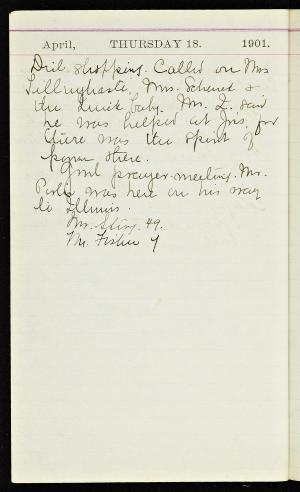 April, THURSDAY 18. 1901.
Did shopping. Called on Mrs
Tillinghaste, Mrs. &
the Quick baby. Mr. Q. said
he was helped at for
there was the spirit of
there.
prayer-meeting. Mr.
was here on his way
to Illinois.
Mr. 49.
Mr. Fisher